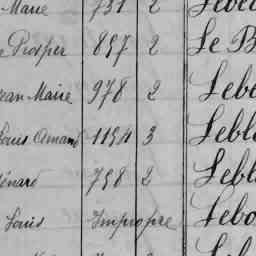 Marie 731 2
Prosper 857 2 Le B
Jean Marie 978 2 Lebe
Louis Amand 1154 3 Lebl
Ménard 758 2 Lebl
Louis Impropre Lebo